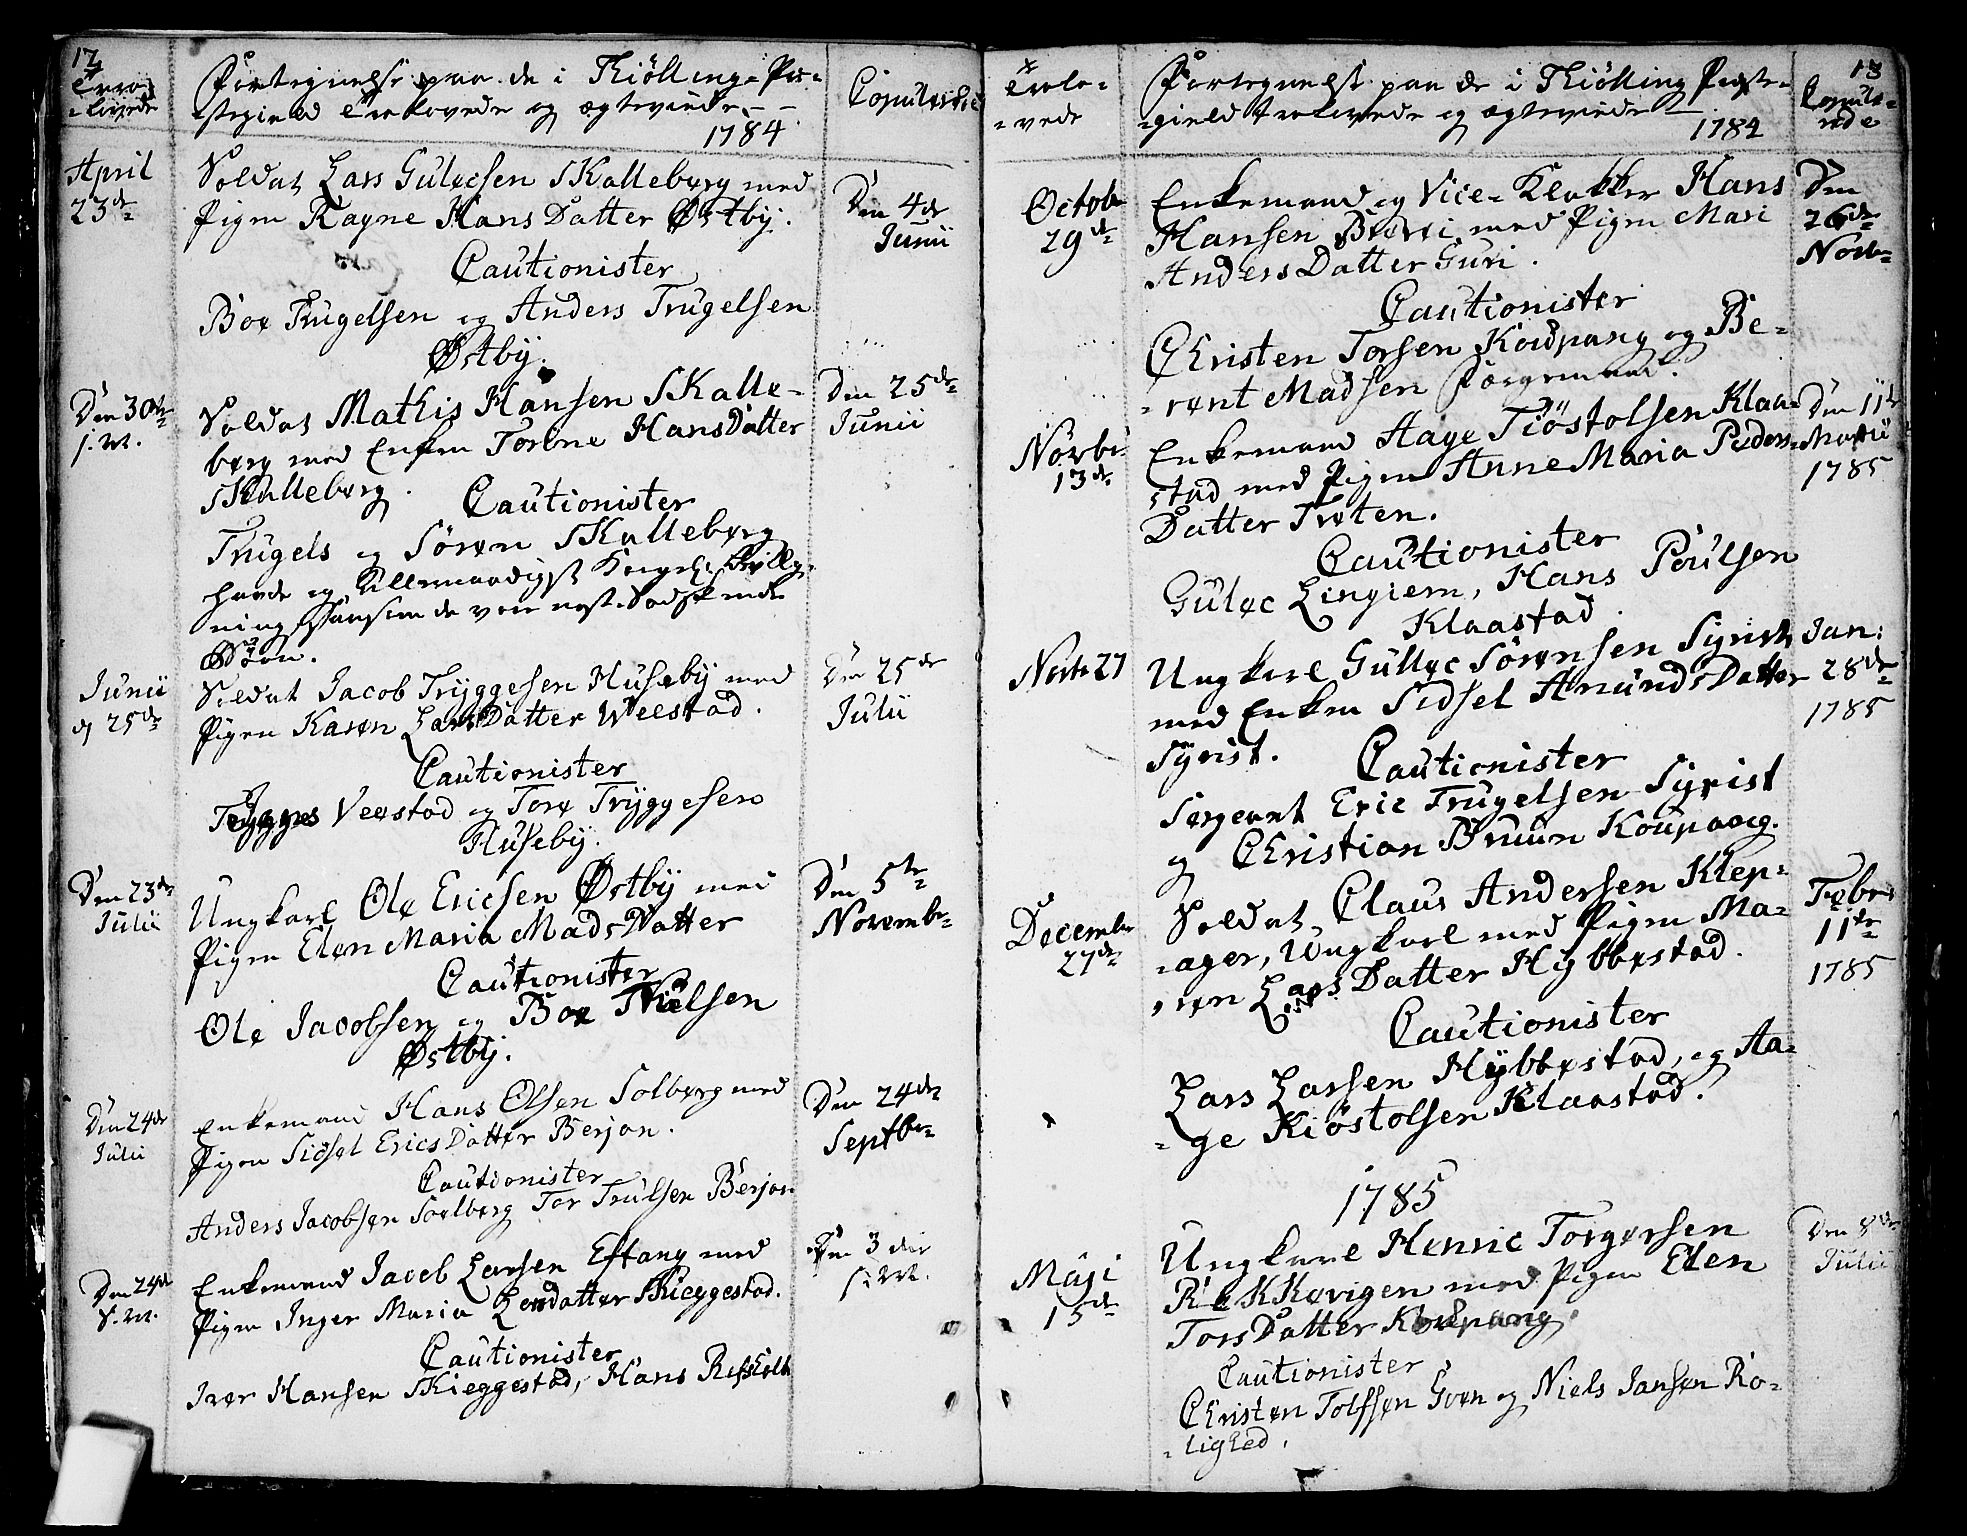 12
Troe-
-lovede
Fortegnelse paa de i Tiølling Præ-
-stegield Troelovede og ægteviede
1784
Copulerede
April
23de
Soldat Lars Guløcsen SKalleberg med
Pigen Ragne HansDatter Østby.
Den 4de
Junii
Cautionister
Boe Trugelsen og Anders Trugelsen
Østby.
Den 30te
s. M.
Soldat Mathis Hansen SKalle-
berg med Enken Torine HansDatter
SKalleberg.
Den 25de
Junii
Cautionister
Trugels og Søren SKalleberg
havde Allernaadigst Kongel: Bevilg-
ning saasom de vare næst-Sødskende
Børn.
Junii
d 25de
Soldat Jacob Tryggesen Huseby med
Pigen Karen LarsDatter Weestad.
Den 25de
Julii
Cautionister
Veestad og Tore Tryggesen
Huseby.
Den 23de
Julii
Ungkarl Ole Ericsen Østby med
Pigen Elen Maria MadsDatter
Den 5te
Novembr
Cautionister
Ole Jacobsen og Boe Nielsen
Østby.
Den 24de
Julii
Enkemand Hans Olsen Solberg med
Pigen Sidsel EricsDatter Berjan.
Den 24de
Septbr
Cautionister
Anders Jacobsen Soelberg Tor Trulsen Berjan
Den 24de
s. M.
Enkemand Jacob Larsen Eftang med
Pigen Inger Maria SKieggestad.
Den 3die
s. M.
Cautionister
Iver Hansen SKieggestad, Hans
13
Troelo-
-vede
Fortegnelse paa de i Tiølling Præste-
-gield troelovede og ægteviede
1784
Copule-
rede
Octobr
29de
Enkemand og Vice-Klokker Hans
Hansen med Pigen Mari
AndersDatter Guri.
Den
26de
Novbr
Cautionister
Christen Torsen Koupang og Be-
-rent Madsen
Novbr
13de
Enkemand Aage Tiøstolsen Klaa-
stad med Pigen Anne Maria Peders-
Datter Træten.
Den 11te
Martii
1785
Cautionister
Guløc Lingiem, Hans Poulsen
Klaastad.
Novbr 27
Ungkarl Gulløc Sørensen Syrist
med Enken Sidsel AmundsDatter
Syrist.
Jan:
28de
1785
Cautionister
Sergeant Eric Trugelsen Syrist
og Christian Bruun Koupang.
Decembr
27de
Soldat Claus Andersen Klep-
-ager, Ungkarl med Pigen Ma-
-ren LarsDatter Hybbestad.
Febr
11te
1785
Cautionister
Lars Larsen Hybbestad, og Aa-
-ge Kiøstolsen Klaastad.
1785
Maji
15de
Ungkarl Henric Torgersen
RekKevigen med Pigen Elen
TorsDatter Koupang.
Den 8de
Julii
Cautionister
Christen Tolfsen Goen og Niels Jansen Ro-
-lighed.